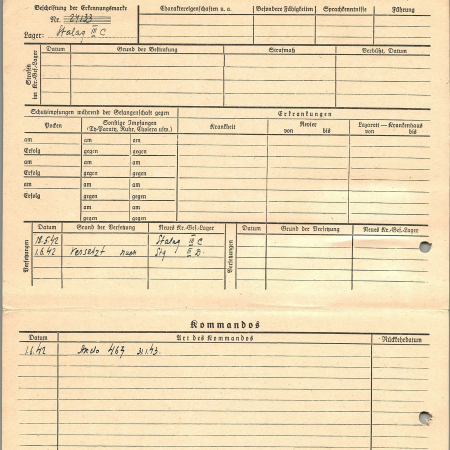 Beschriftung der Erkennungsmarke
Nr. 24133
Lager: Stalag III C
Charaktereigenschaften u. a.
Besondere Fähigkeiten
Sprachkenntnisse
Führung
Strafen im Kr.-Gef.-Lager
Datum
Grund der Bestrafung
Strafmaß
Verbüßt, Datum
Schutzimpfungen während der Gefangenschaft gegen
Erkrankungen
Pocken
Sonstige Impfungen
(Ty.-Paraty., Ruhr, Cholera usw.)
Krankheit
Revier
von bis
Lazarett — Krankenhaus
von bis
am am
Erfolg gegen
am am
Erfolg gegen
am am
Erfolg gegen
am am
Erfolg gegen
am
gegen
Versetzungen
Datum
Grund der Versetzung
Neues Kr.-Gef.-Lager
Versetzungen
Datum
Grund der Versetzung
Neues Kr.-Gef.-Lager
18.5.42 Stalag III C
1.6.42 versetzt nach Stg III D.
Kommandos
Datum
Art des Kommandos
Rückkehrdatum
1.6.42 Akdo 467 31.1.43.